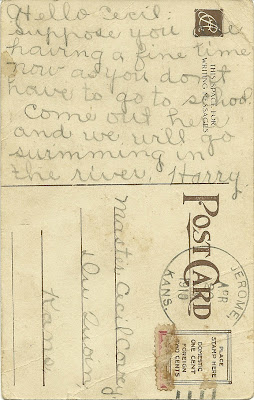 Hello Cecil:
Suppose you are
having a fine time
now as you don't
have to go to school.
Come out here
and we will go
swimming in
the river. Harry
THIS SPACE FOR
WRITING MESSAGES
POST CARD
Master Cecil Corey
Kans
JEROME,
APR
1910
KANS.
PLACE
STAMP HERE
DOMESTIC
ONE CENT
FOREIGN
TWO CENTS